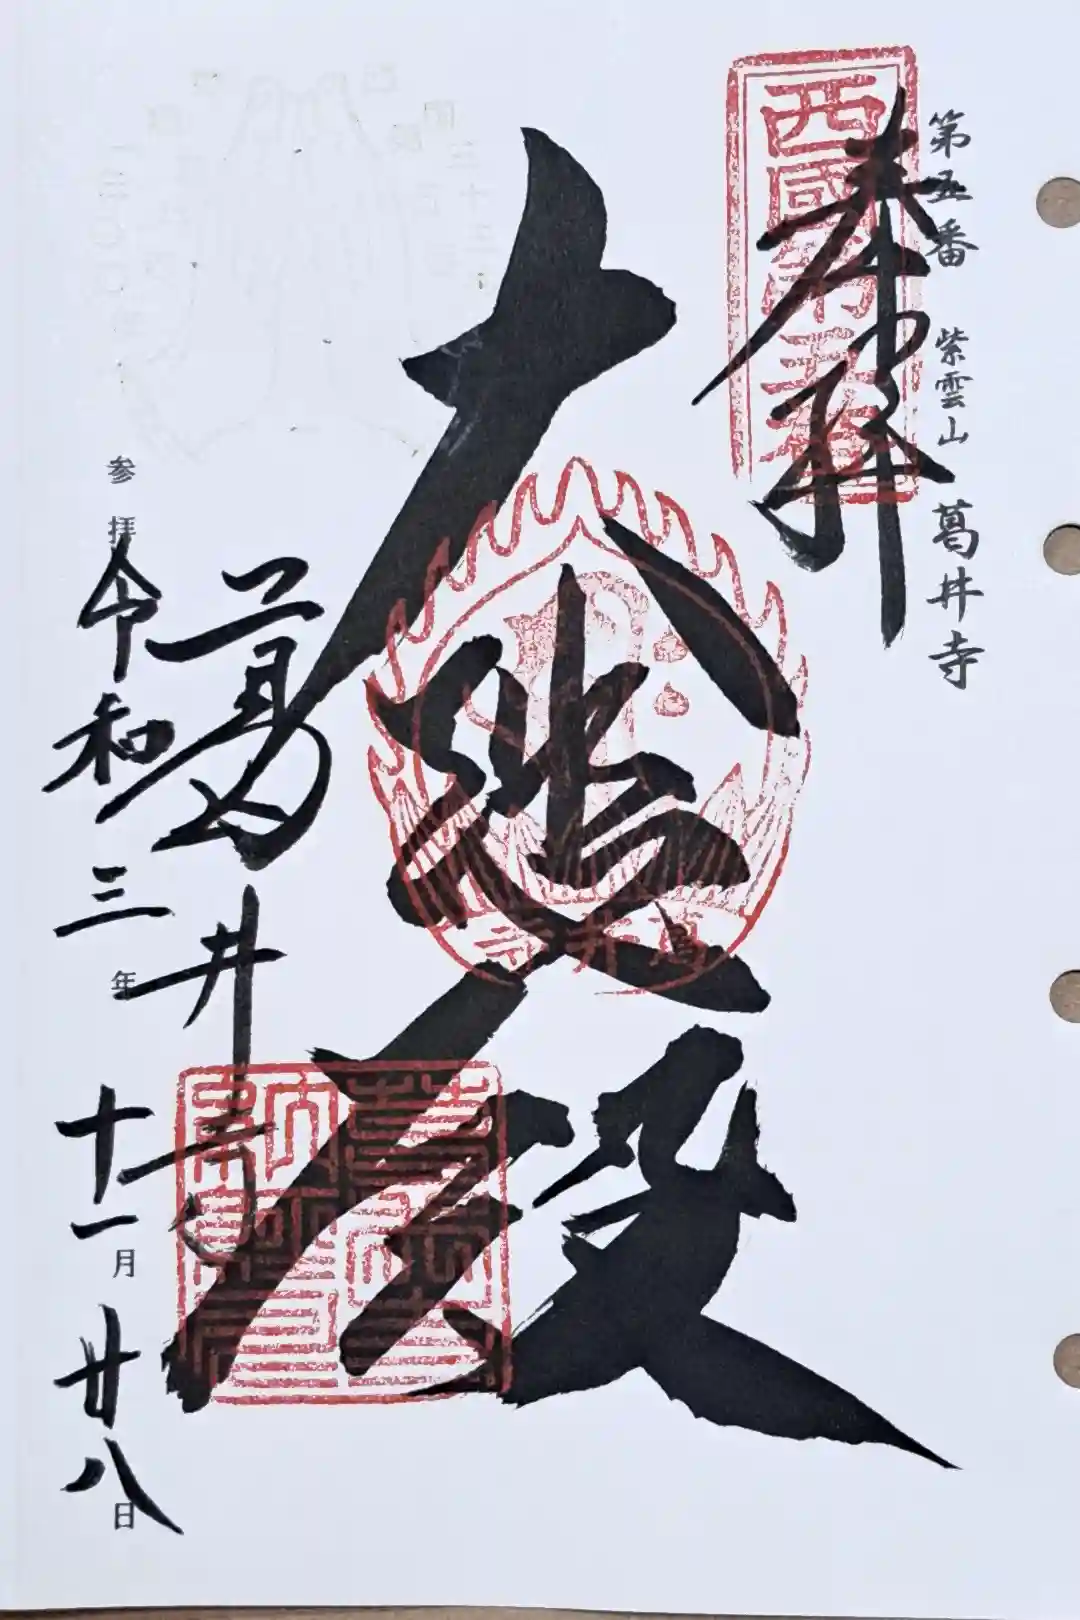 第五番 紫雲山 葛井寺
奉拝
西國第五番
大悲殿
葛井寺
葛井寺
参拝 令和三年十一月廿八日